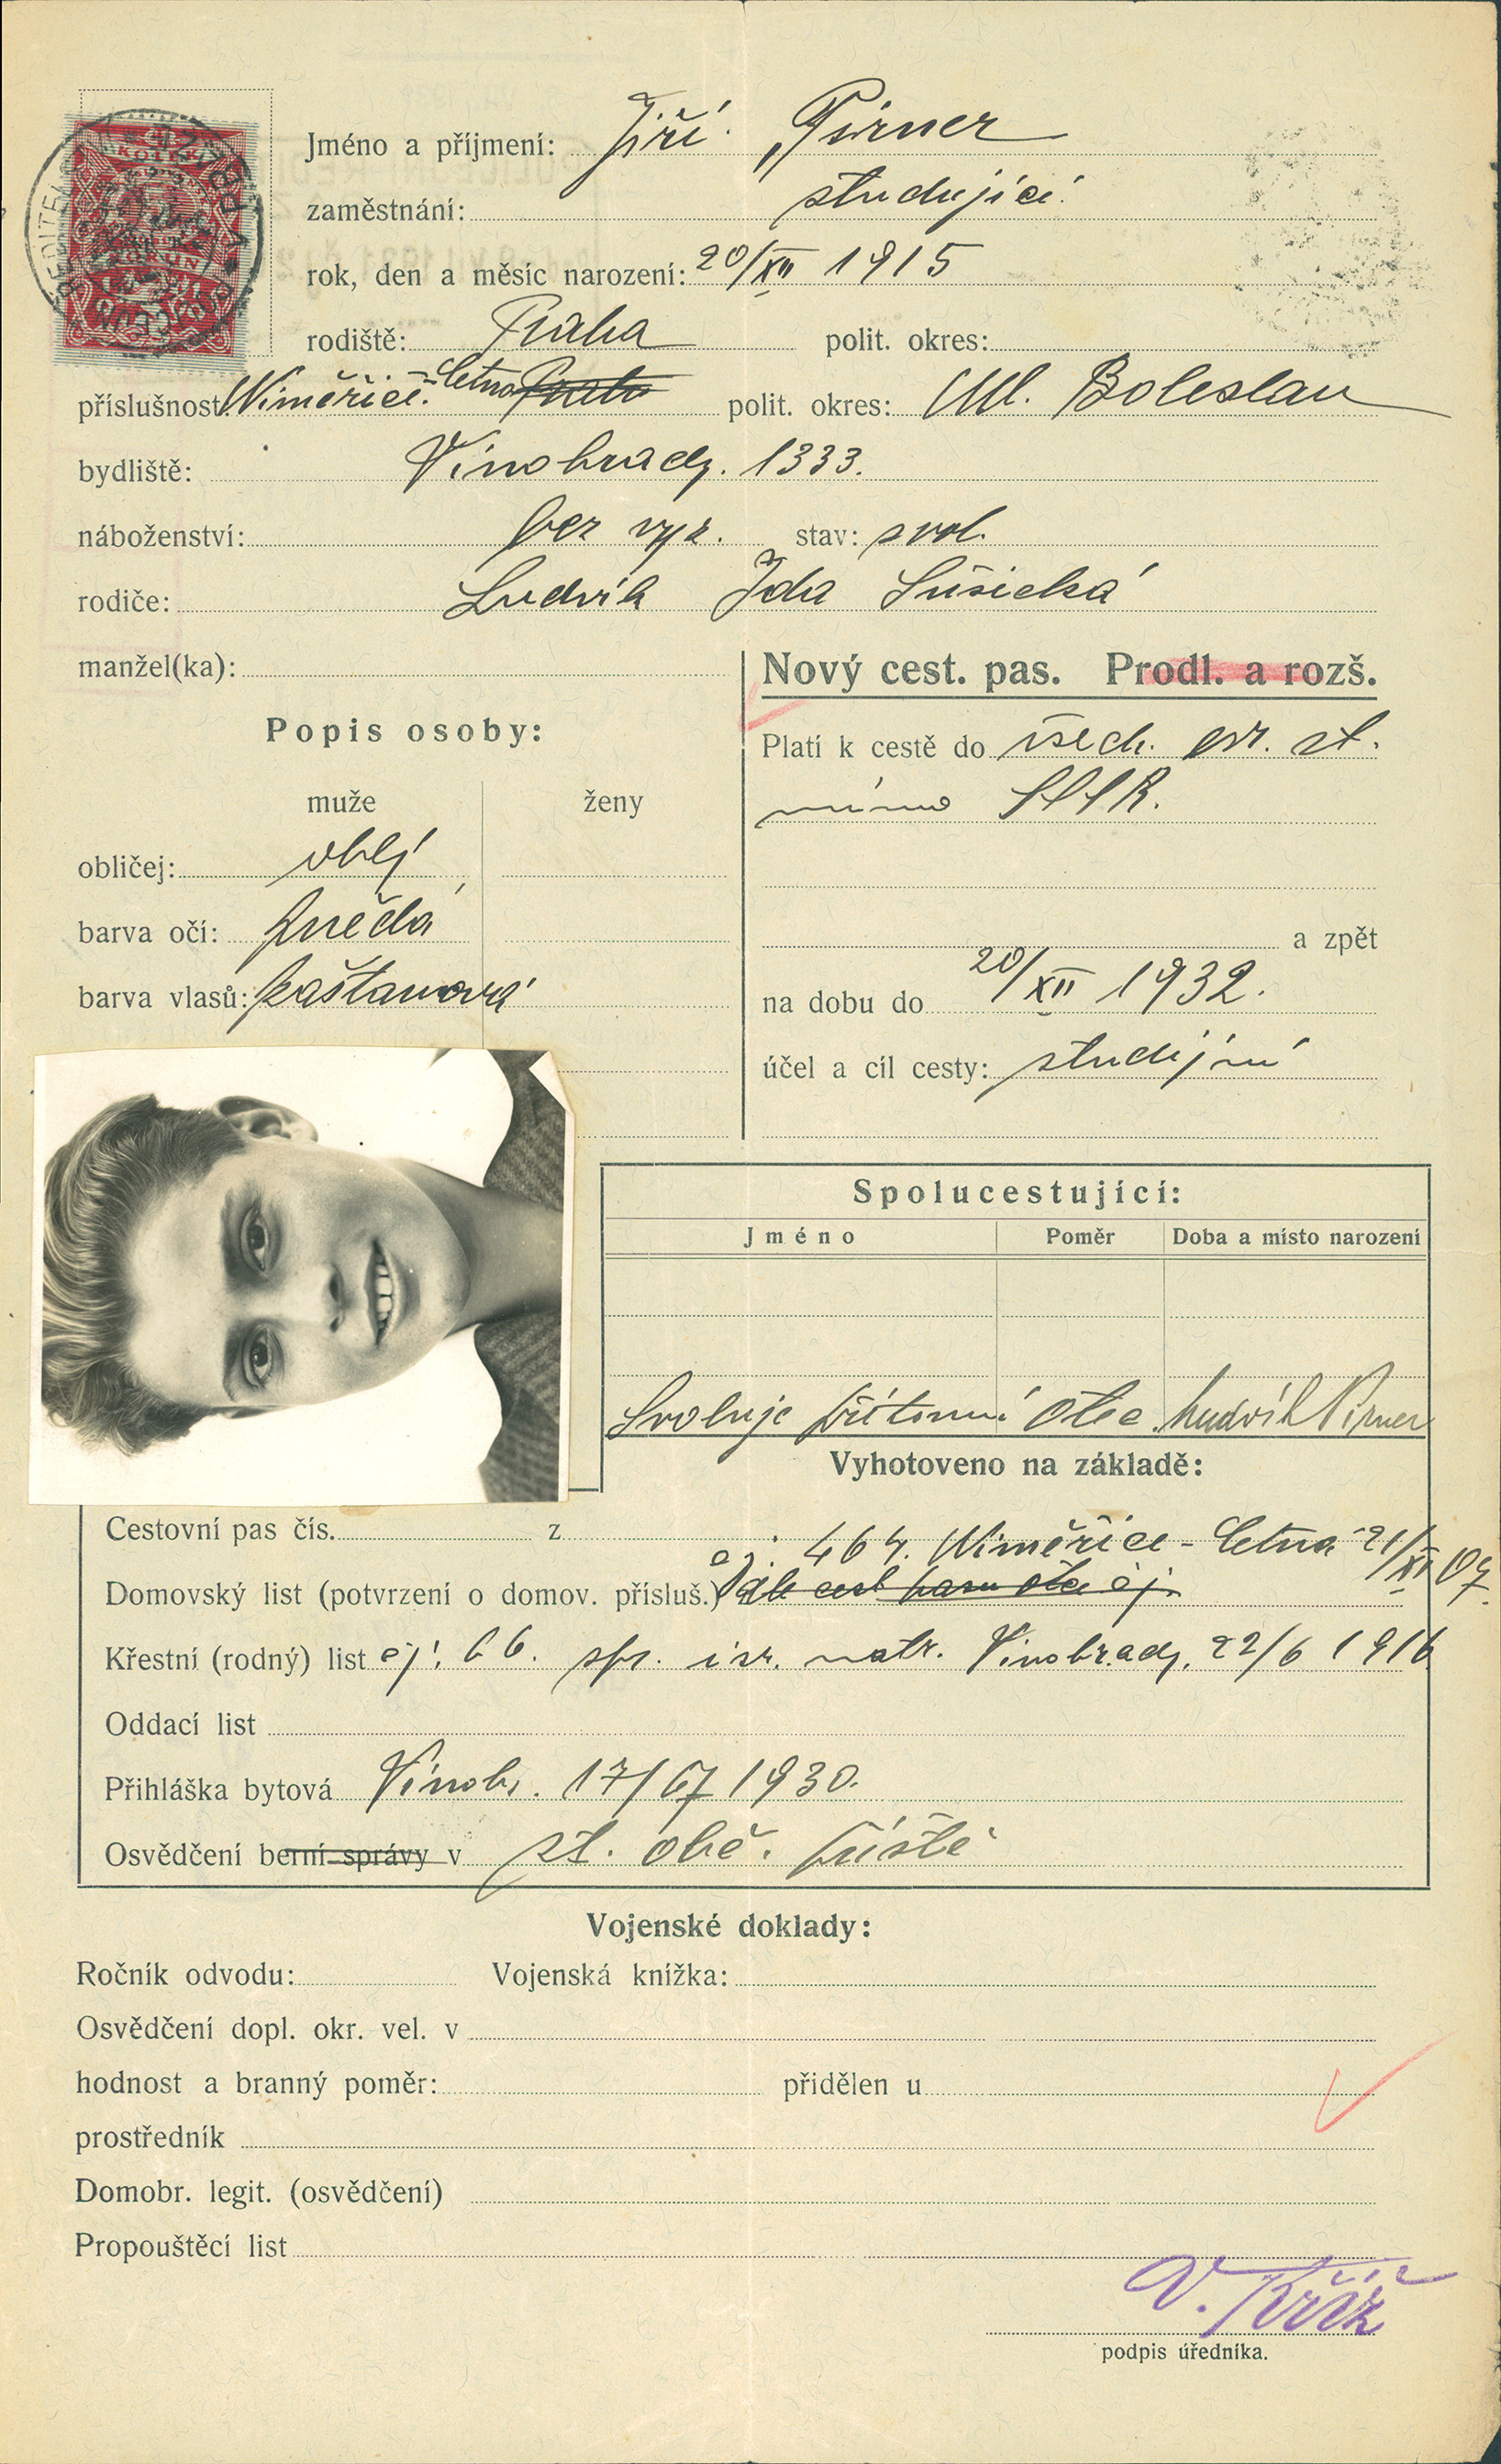 Jméno a příjmení: Jiří Pirner
zaměstnání: studující
rok, den a měsíc narození: 20/XII 1915
rodiště: Praha polit. okres:
příslušnost Niměřice-Letna Praha polit. okres: Ml. Boleslav
bydliště: Vinohrady. 1333.
náboženství: bez vyz. stav: svob.
rodiče: Ludvík Ida Sušická
manžel(ka):
Nový cest. pas. Prodl. a rozš.
Popis osoby:
Platí k cestě do všech. evr. st.
mimo SSSR.
muže ženy
obličej: oblý
barva očí: hnědá
a zpět
barva vlasů: kaštanová
na dobu do 20/XII 1932.
účel a cíl cesty: studijní
Spolucestující:
Jméno Poměr Doba a místo narození
Svoluje přítomní otec Ludvík Pirner
Vyhotoveno na základě:
Cestovní pas čís. z
čj. 464. Niměřice-Letna 21/XII 07.
Domovský list (potvrzení o domov. přísluš.) dle cest pasu otce čj.
Křestní (rodný) list čj. 66. isr. matr. Vinohrady. 22/6 1916
Oddací list
Přihláška bytová Vinohr. 17/6 1930.
Osvědčení berní správy v st. obč. příště
Vojenské doklady:
Ročník odvodu: Vojenská knížka:
Osvědčení dopl. okr. vel. v
hodnost a branný poměr: přidělen u
prostředník
Domobr. legit. (osvědčení)
Propouštěcí list
V. Kříž
podpis úředníka.